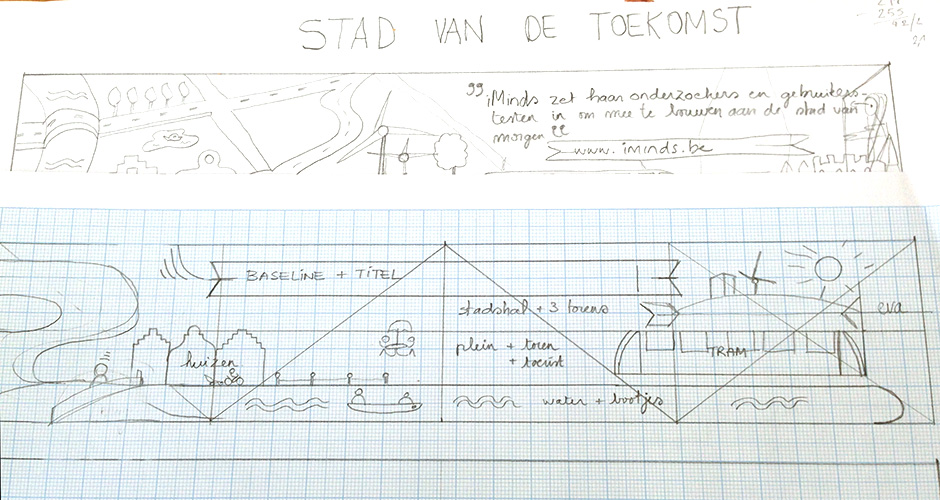 STAD VAN DE TOEKOMST
255
" iMinds zet haar onderzoekers en gebruikers-
testen in om mee te bouwen aan de stad van
morgen "
www.iminds.be
BASELINE + TITEL
stadshal + 3 torens
eva
plein + toren
+ toerist
TRAM
huizen
water + bootjes